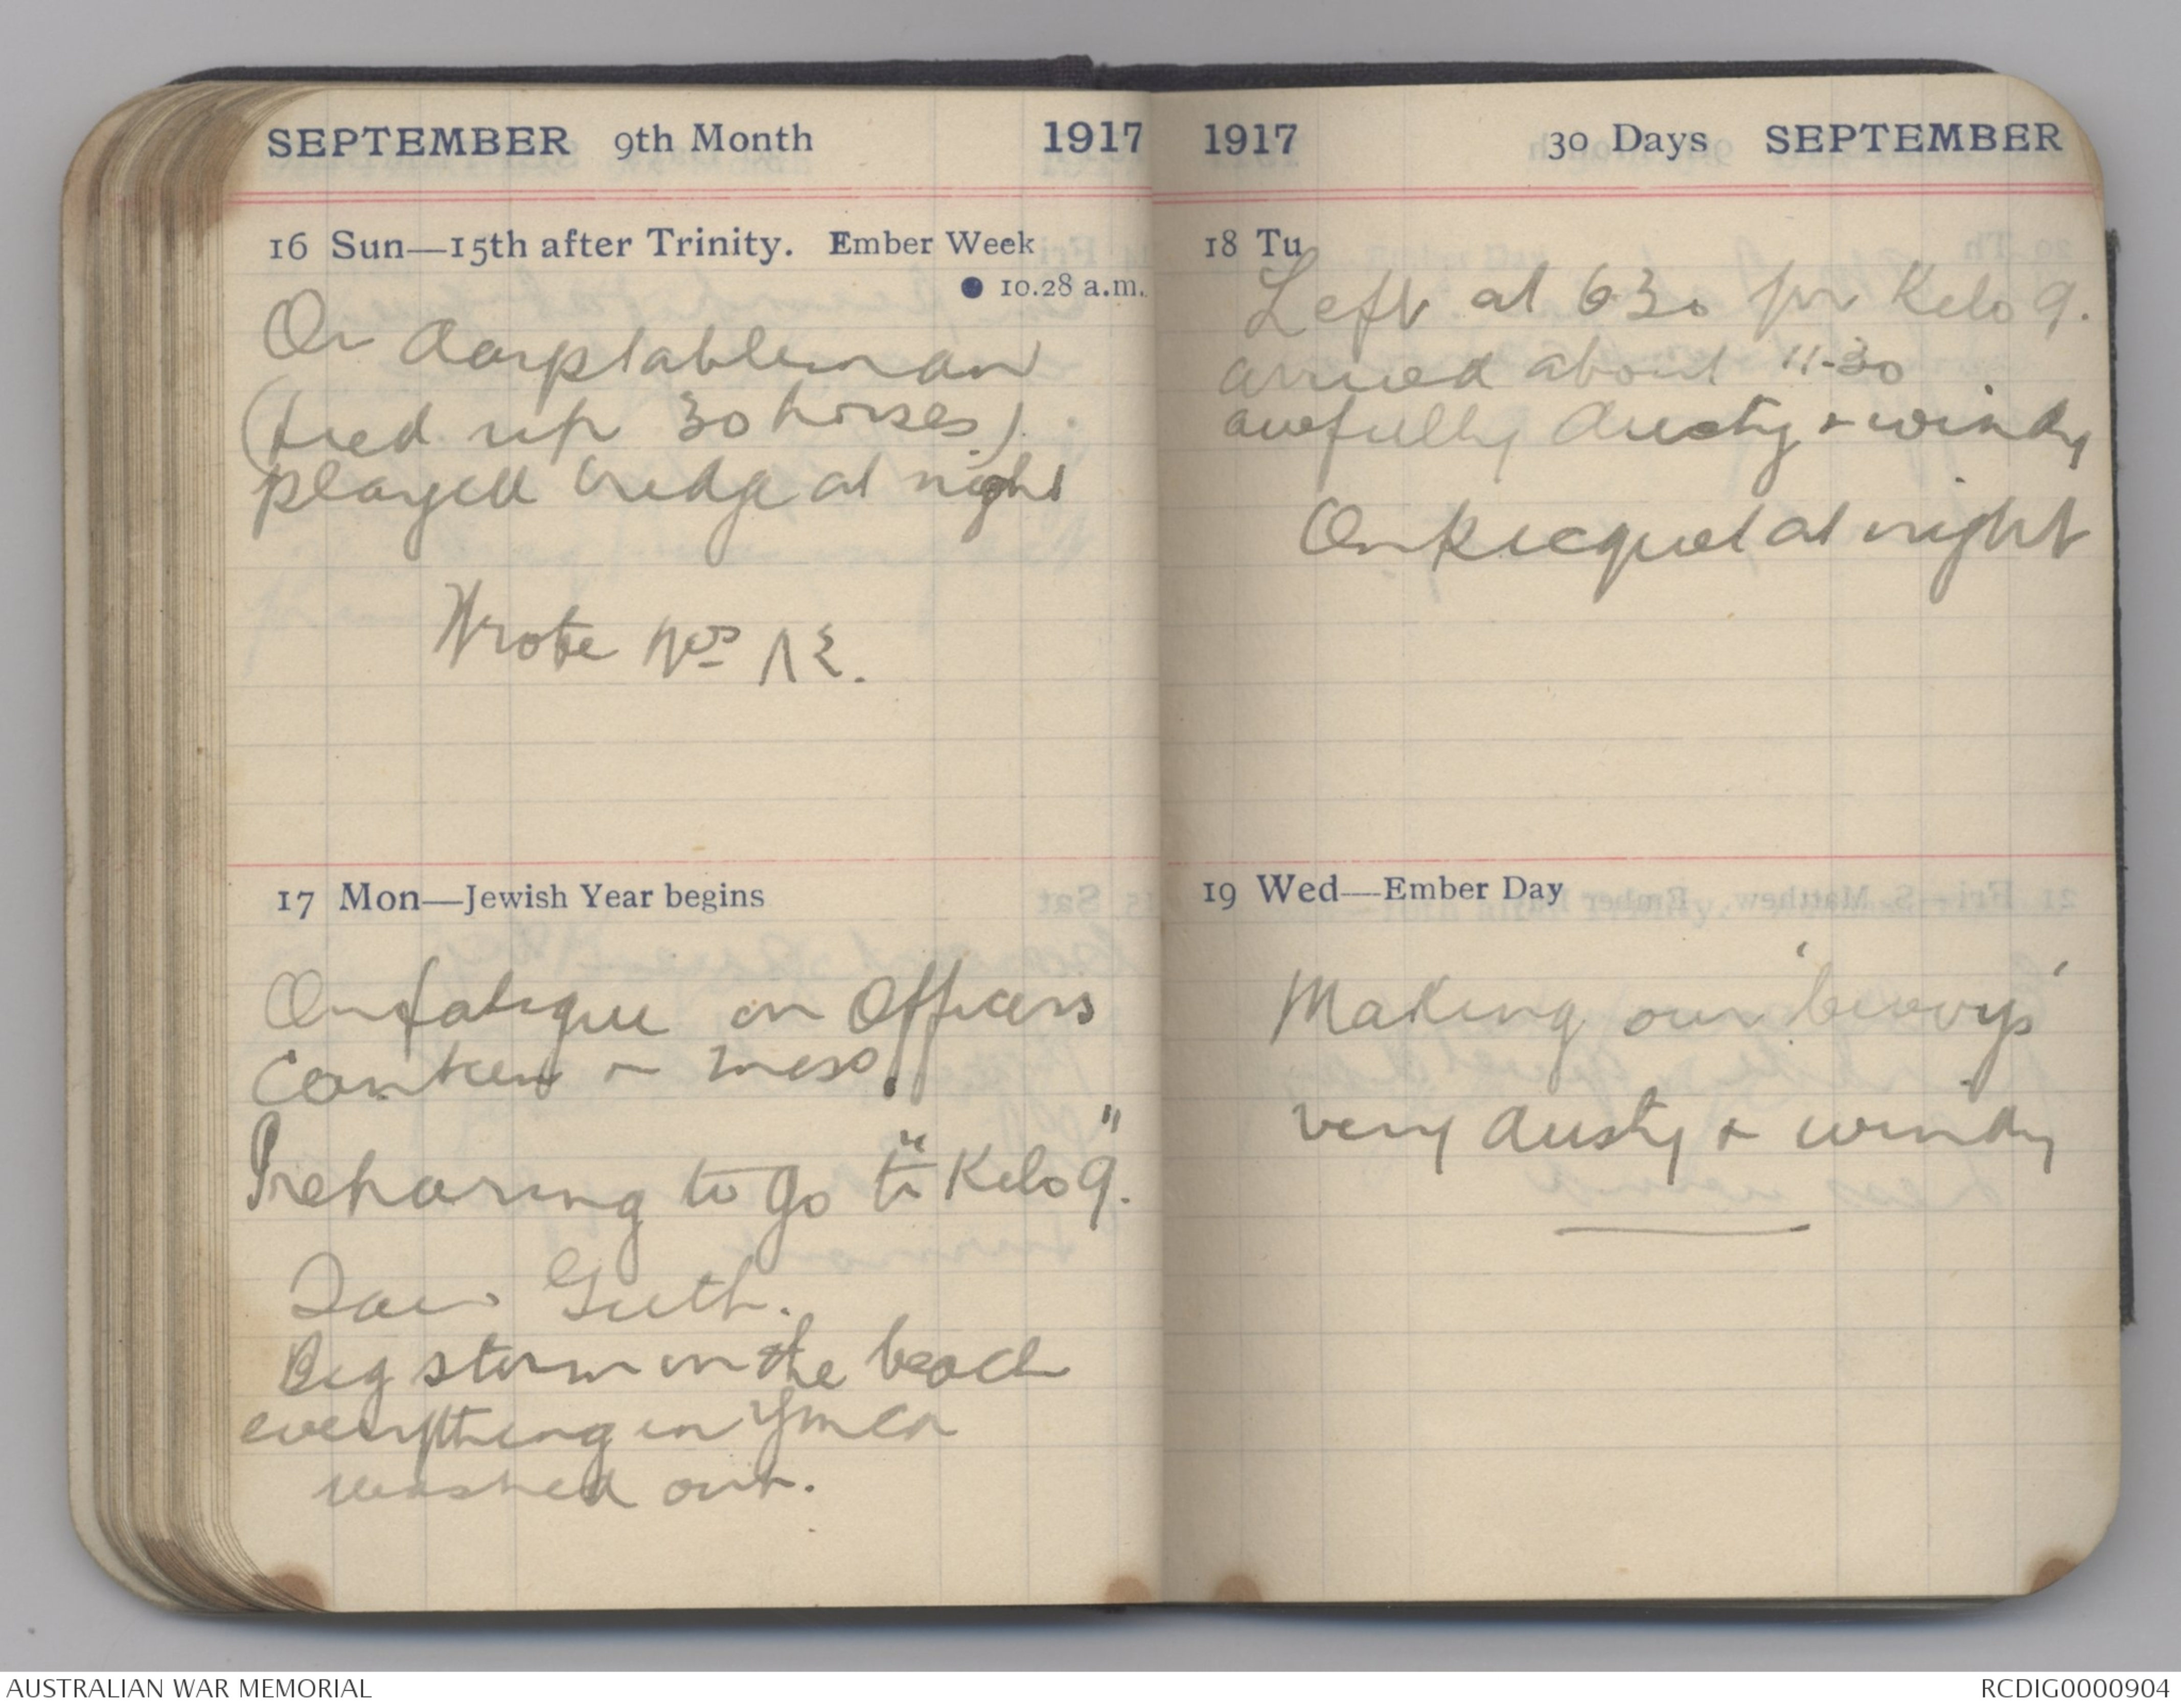 SEPTEMBER 9th Month 1917
16 Sun—15th after Trinity. Ember Week
● 10.28 a.m.
On
(tied up 30 horses).
played bridge at night
Wrote Nos
17 Mon—Jewish Year begins
On fatigue on Officers
Canteen & mess.
Preparing to go to "Kelo 9".
Saw Guth.
Big storm on the beach
everything in Ymca
washed out.
1917 30 Days SEPTEMBER
18 Tu
Left at 630 for Kelo 9.
arrived about 11-30
awfully dusty & windy
On picquet at night
19 Wed—Ember Day
Making our 'bivvys'
very dusty & windy
AUSTRALIAN WAR MEMORIAL
RCDIG0000904